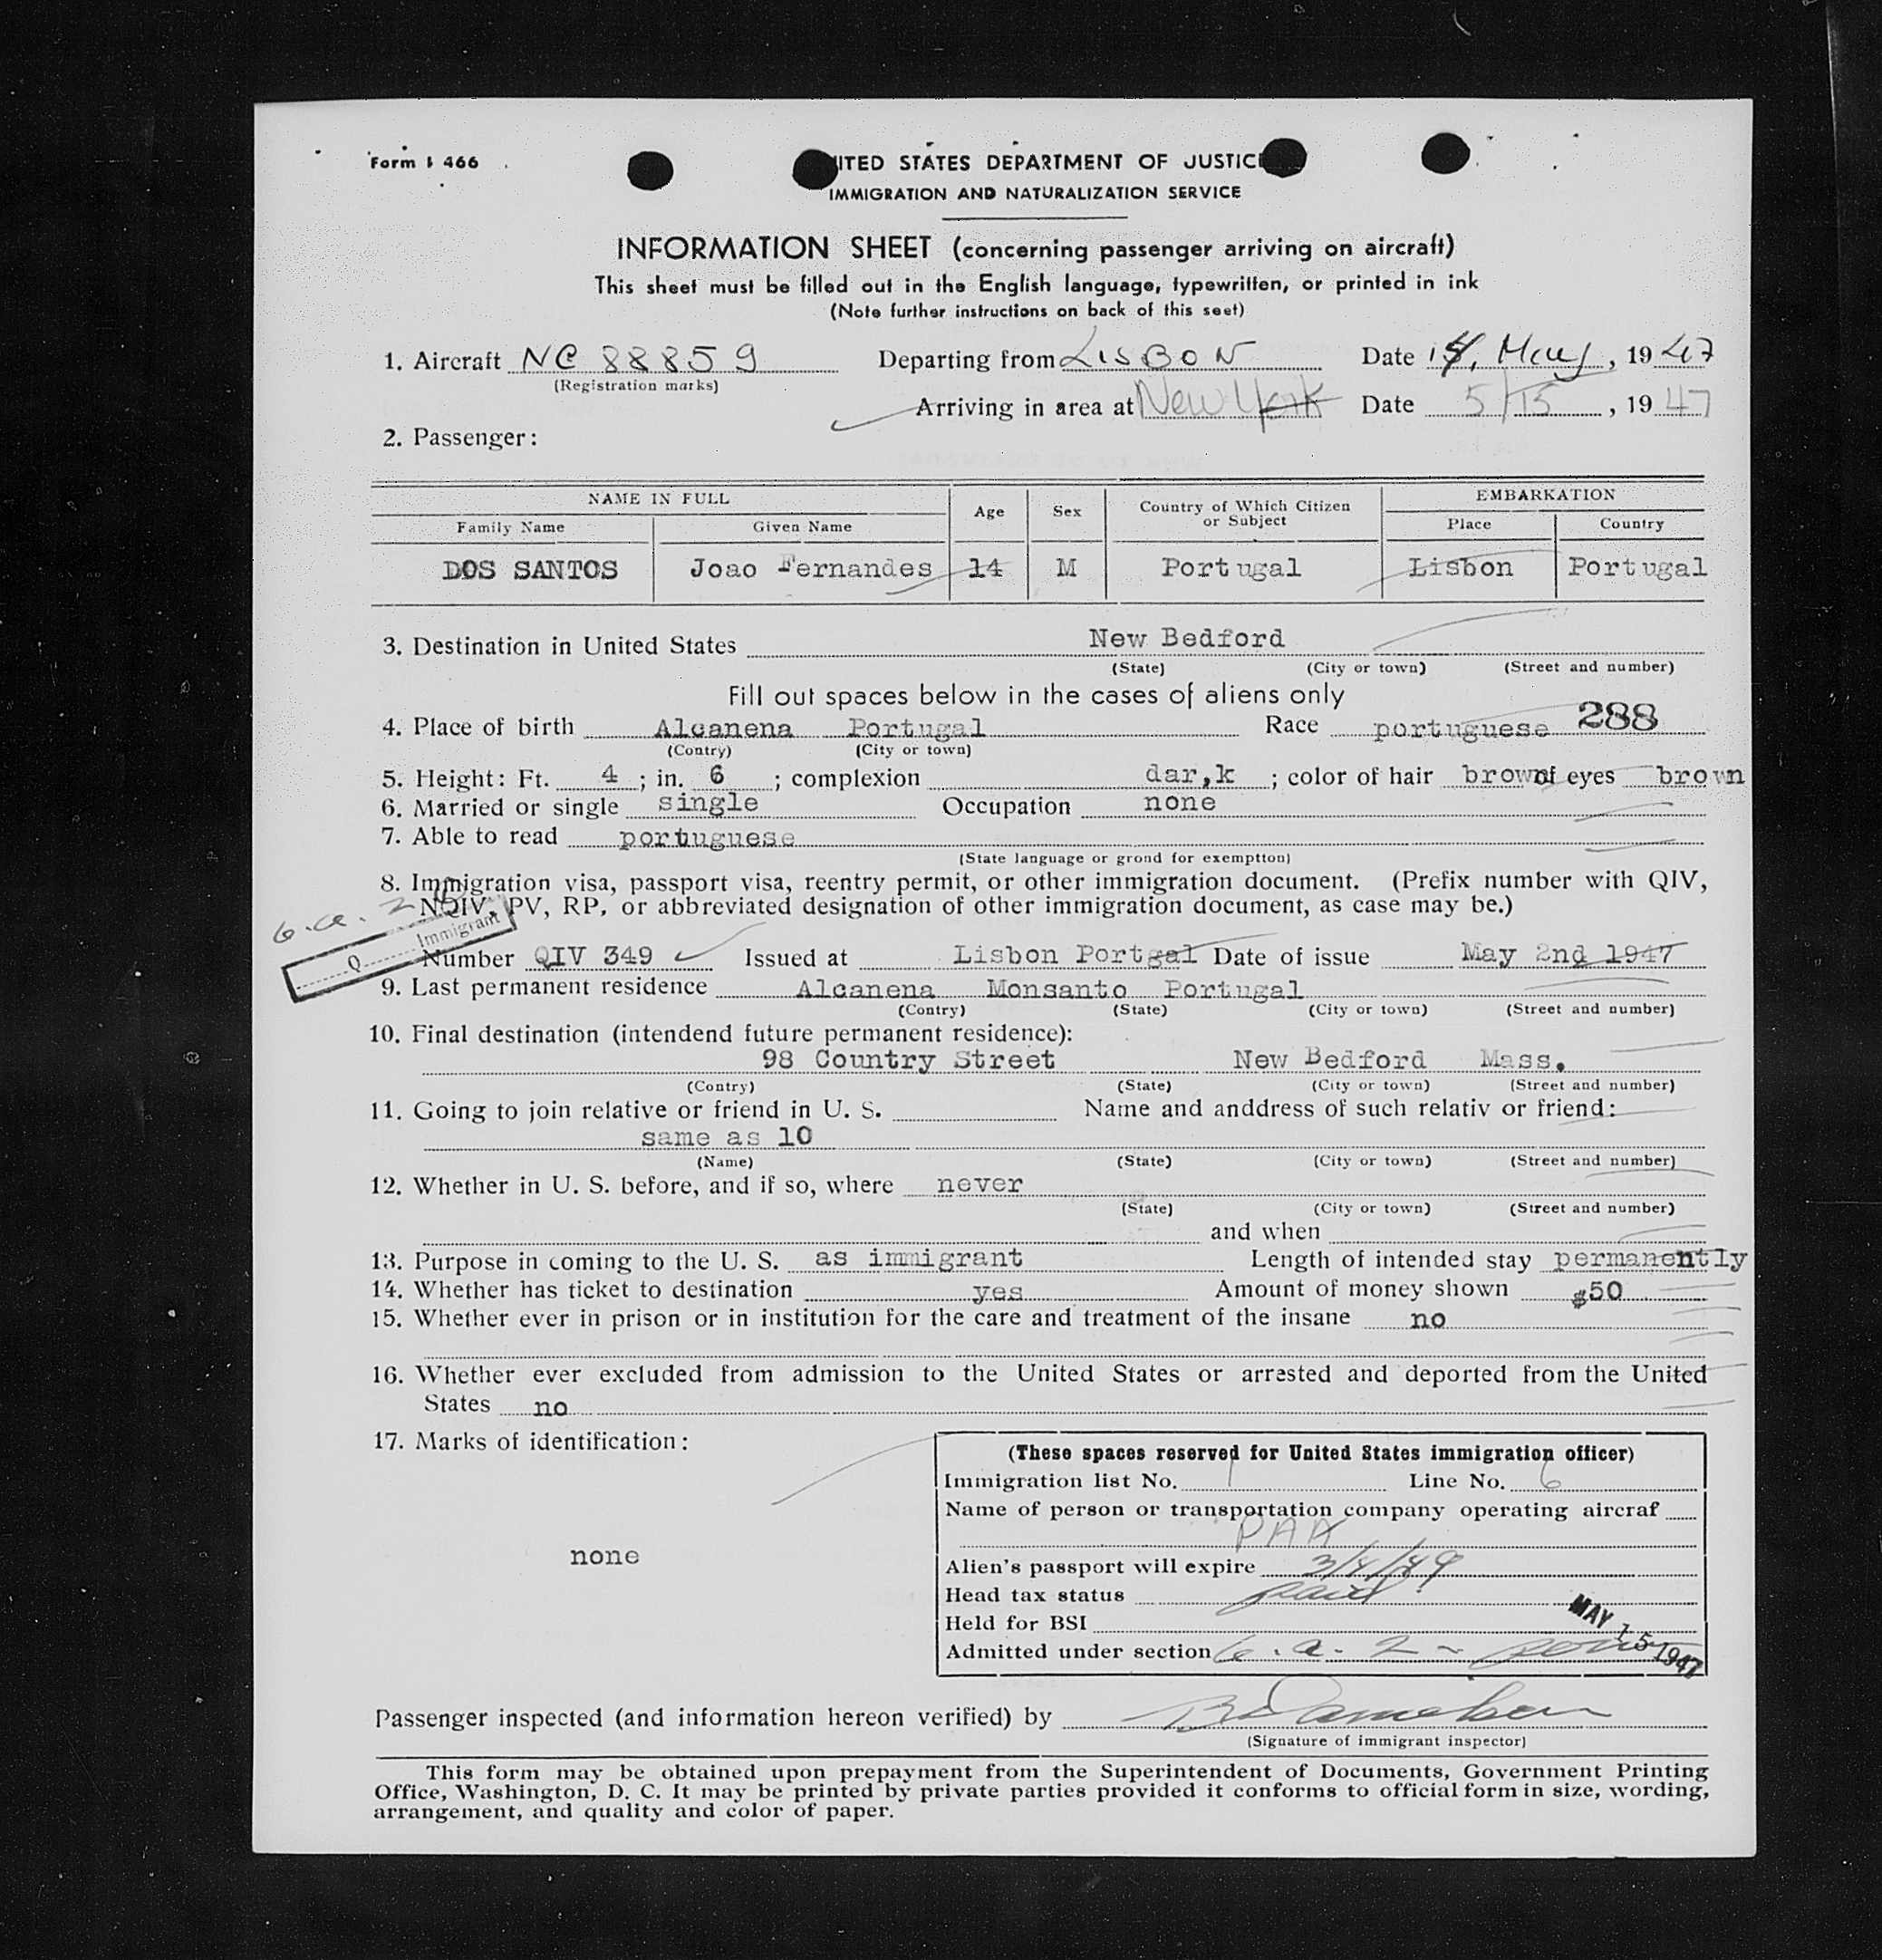 Form I 466
UNITED STATES DEPARTMENT OF JUSTICE
IMMIGRATION AND NATURALIZATION SERVICE
INFORMATION SHEET (concerning passenger arriving on aircraft)
This sheet must be filled out in the English language, typewritten, or printed in ink
(Note further instructions on back of this seet)
1. Aircraft NC 88859 Departing from LISBON Date 15, May, 1947
(Registration marks)
Arriving in area at New York Date 5/15, 1947
2. Passenger:
NAME IN FULL Age Sex Country of Which Citizen or Subject EMBARKATION
Family Name Given Name Place Country
DOS SANTOS Joao Fernandes 14 M Portugal Lisbon Portugal
3. Destination in United States New Bedford
(State) (City or town) (Street and number)
Fill out spaces below in the cases of aliens only
4. Place of birth Alcanena Portugal Race portuguese 288
(Contry) (City or town)
5. Height: Ft. 4 ; in. 6 ; complexion dar,k ; color of hair brown of eyes brown
6. Married or single single Occupation none
7. Able to read portuguese
(State language or grond for exemptton)
8. Immigration visa, passport visa, reentry permit, or other immigration document. (Prefix number with QIV,
6.a.2 NQIV, PV, RP, or abbreviated designation of other immigration document, as case may be.)
Q Immigrant
Number QIV 349 Issued at Lisbon Portgal Date of issue May 2nd 1947
9. Last permanent residence Alcanena Monsanto Portugal
(Contry) (State) (City or town) (Street and number)
10. Final destination (intendend future permanent residence):
98 Country Street New Bedford Mass.
(Contry) (State) (City or town) (Street and number)
11. Going to join relative or friend in U. S. Name and anddress of such relativ or friend:
same as 10
(Name) (State) (City or town) (Street and number)
12. Whether in U. S. before, and if so, where never
(State) (City or town) (Street and number)
and when
13. Purpose in coming to the U. S. as immigrant Length of intended stay permanently
14. Whether has ticket to destination yes Amount of money shown $50
15. Whether ever in prison or in institution for the care and treatment of the insane no
16. Whether ever excluded from admission to the United States or arrested and deported from the United
States no
17. Marks of identification:
none
(These spaces reserved for United States immigration officer)
Immigration list No. 1 Line No. 6
Name of person or transportation company operating aircraf
PAA
Alien's passport will expire 3/4/49
Head tax status paid
Held for BSI
Admitted under section 6.a.2 -
MAY 15 1947
Passenger inspected (and information hereon verified) by
(Signature of immigrant inspector)
This form may be obtained upon prepayment from the Superintendent of Documents, Government Printing
Office, Washington, D. C. It may be printed by private parties provided it conforms to official form in size, wording,
arrangement, and quality and color of paper.